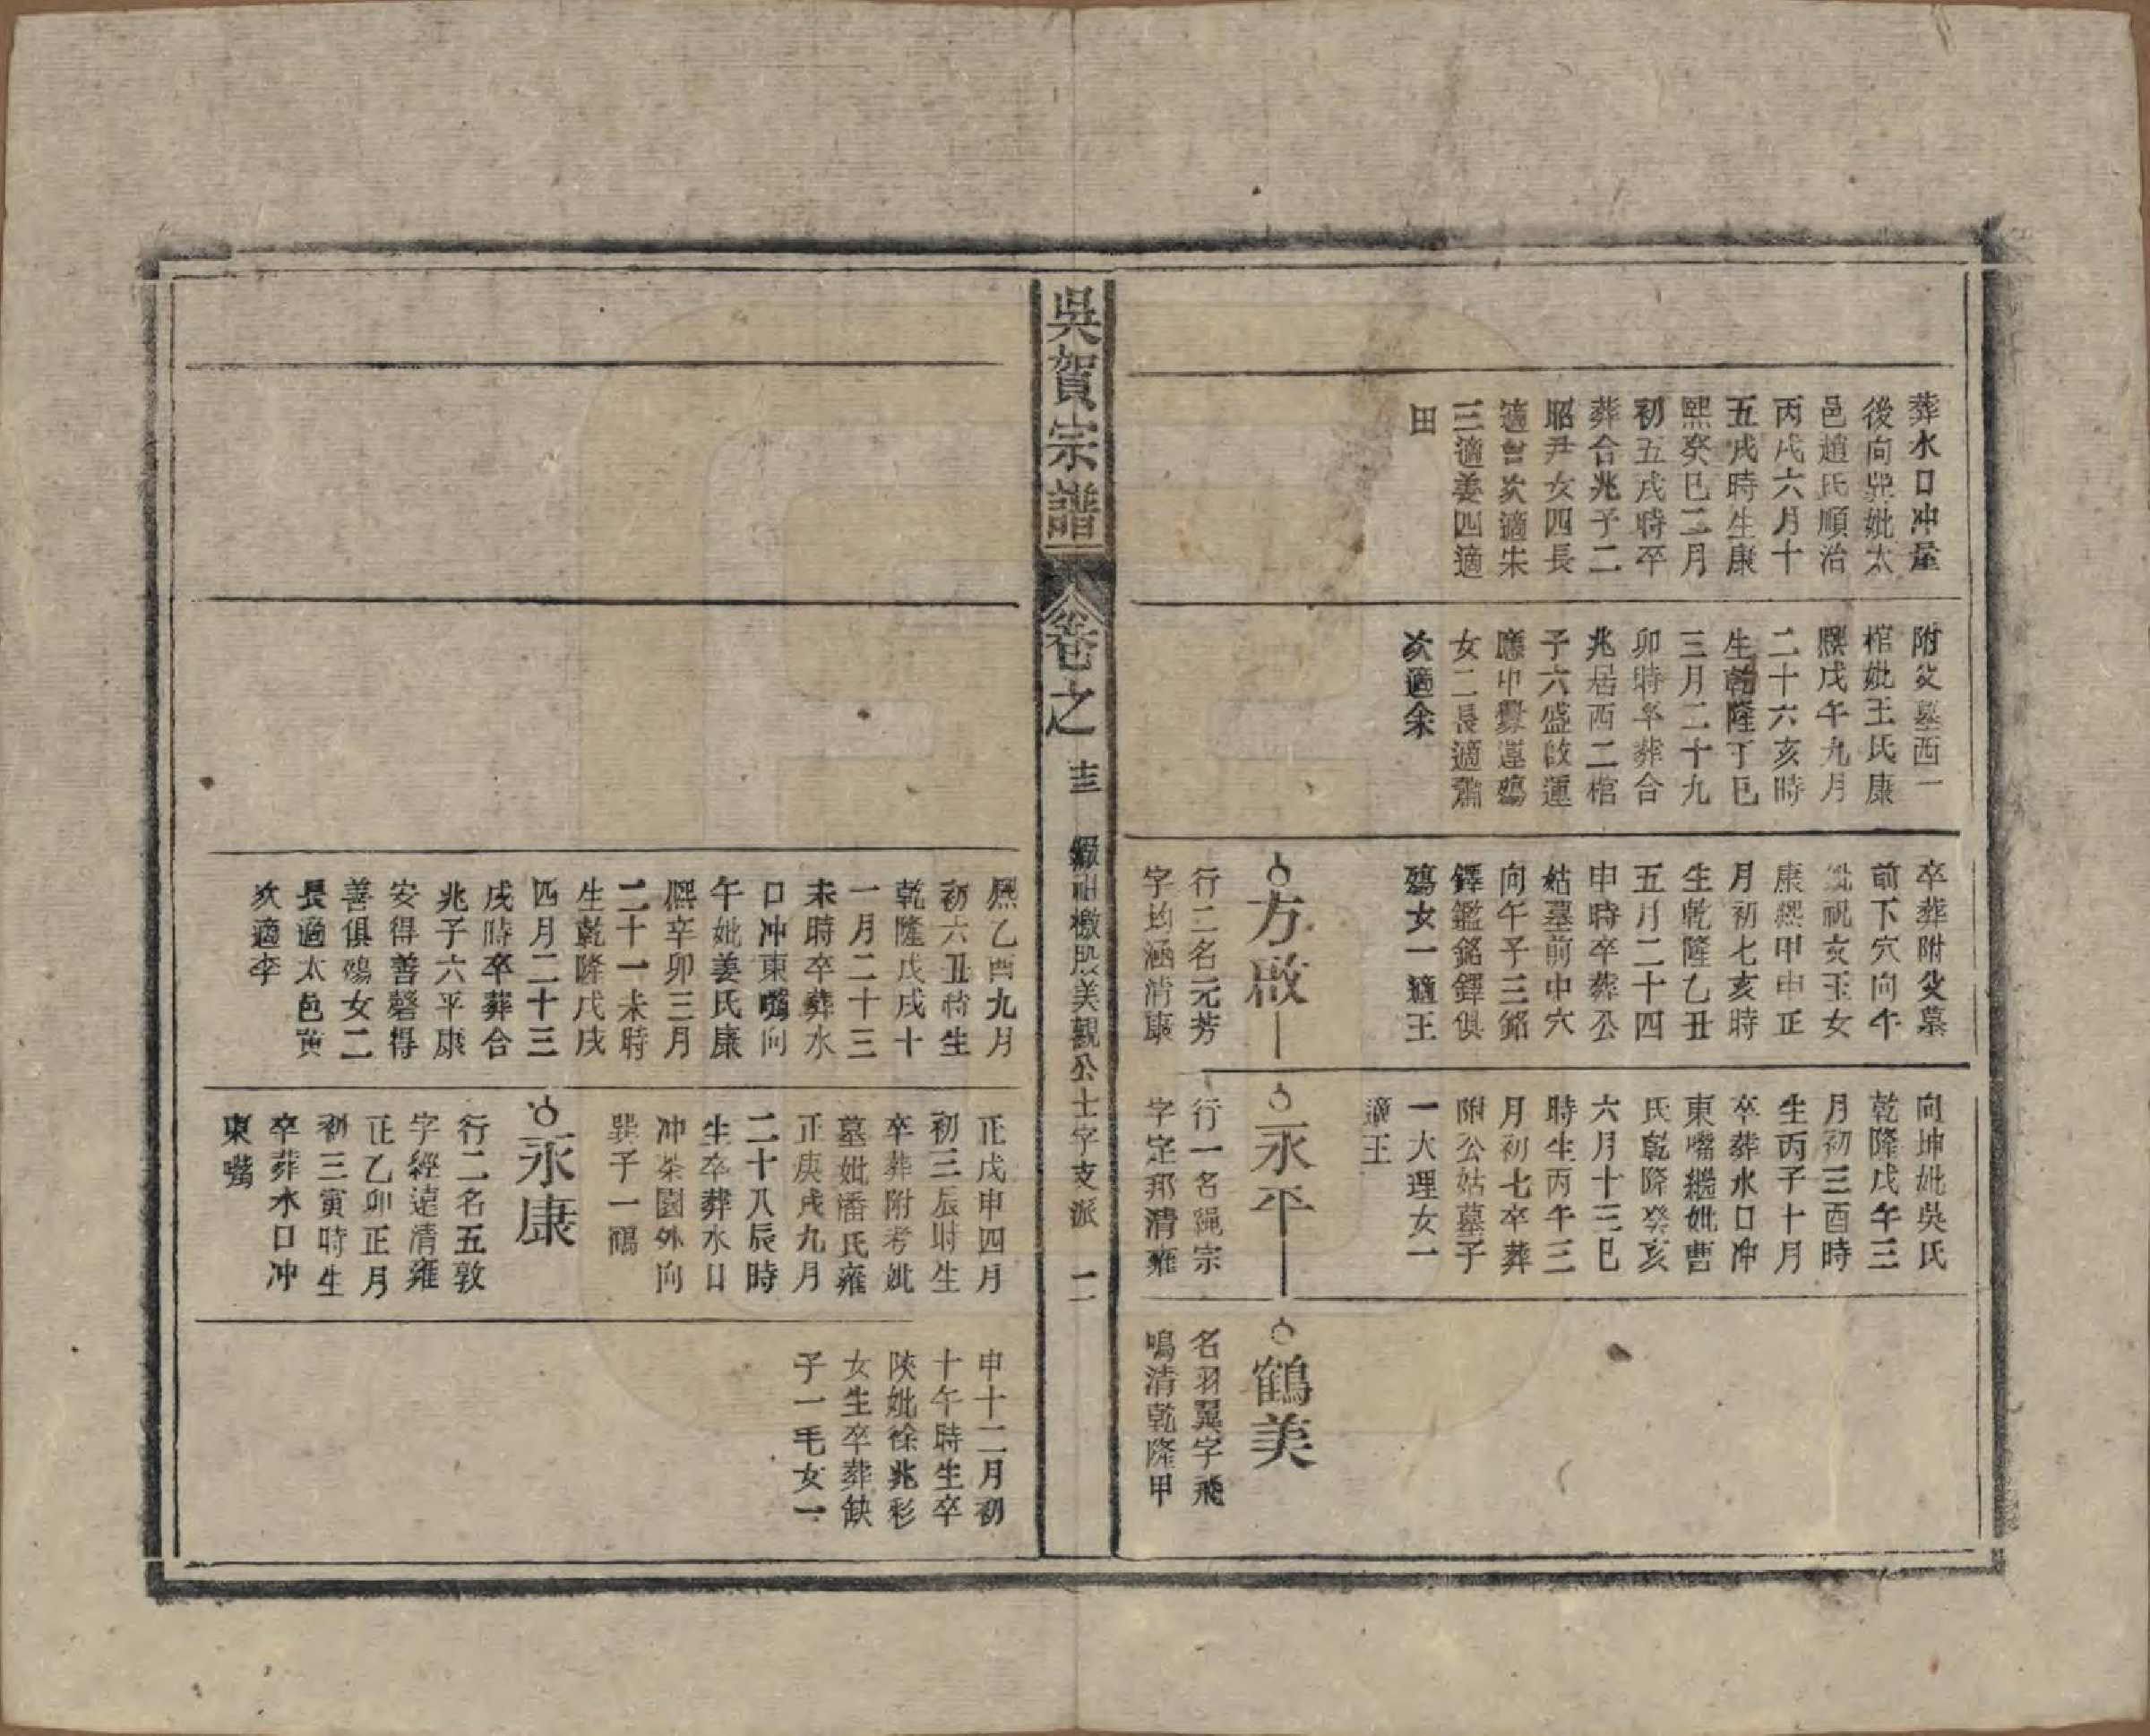 葬水口冲屋
後向巽妣太
邑趙氏順治
丙戌六月十
五戌時生康
熙癸巳二月
初五戌時卒
葬合兆子二
昭尹女四長
適曾次適朱
三適姜四適
田
附父墓西一
棺妣王氏康
熙戊午九月
二十六亥時
生乾隆丁巳
三月二十九
卯時卒葬合
兆居西二棺
子六盛啟運
應中 運殤
女二長適蕭
次適余
卒葬附父墓
前下穴向午
妣祝友玉女
康熙甲申正
月初七亥時
生乾隆乙丑
五月二十四
申時卒葬公
姑墓前中穴
向午子三銘
鐸鑑銘鐸俱
殤女一適王
方啟
行二名元芳
字均涵清康
向坤妣吳氏
乾隆戊午三
月初三酉時
生丙子十月
卒葬水口冲
東嘴繼妣曹
氏乾隆癸亥
六月十三巳
時生丙午三
月初七卒葬
附公姑墓子
一大理女一
適王
永平
行一名繩宗
字定邦清雍
鶴美
名羽翼字飛
鳴清乾隆甲
吳賀宗譜
卷之
十三
緞祖檄股美觀公士字支派
二
熙乙酉九月
初六丑時生
乾隆戊戌十
一月二十三
未時卒葬水
口冲東嘴向
午妣姜氏康
熙辛卯三月
二十一未時
生乾隆戊戌
四月二十三
戌時卒葬合
兆子六平康
安得善磬得
善俱殤女二
長適太邑黃
次適李
正戊申四月
初三辰時生
卒葬附考妣
墓妣潘氏雍
正庚戌九月
二十八辰時
生卒葬水口
冲茶園外向
巽子一鶴
永康
行二名五敦
字經遠清雍
正乙卯正月
初三寅時生
卒葬水口冲
東嘴
申十二月初
十午時生卒
陝妣徐兆彩
女生卒葬缺
子一毛女一